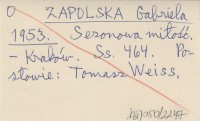 O ZAPOLSKA Gabriela
1953. Sezonowa miłość.
– Kraków. Ss. 464. Po-
słowie: Tomasz Weiss.